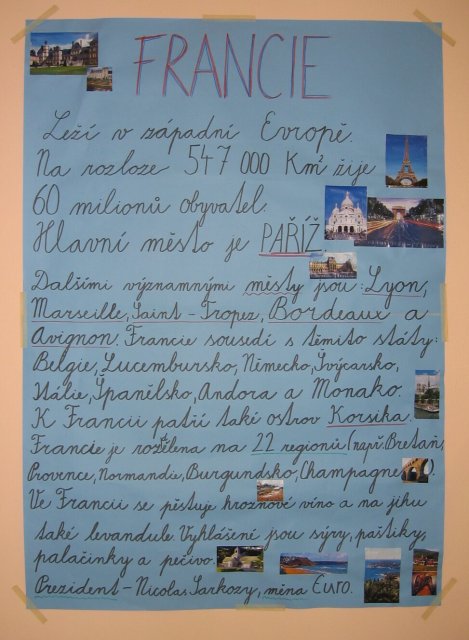 FRANCIE
Leží v západní Evropě.
Na rozloze 547 000 Km² žije
60 milionů obyvatel.
Hlavní město je PAŘÍŽ.
Dalšími významnými městy jsou: Lyon,
Marseille, Saint-Tropez, Bordeaux a
Avignon. Francie sousedí s těmito státy:
Belgie, Lucembursko, Německo, Švýcarsko,
Itálie, Španělsko, Andora a Monako.
K Francii patří také ostrov Korsika.
Francie je rozdělena na 22 regionů (např. Bretaň,
Provence, Normandie, Burgundsko, Champagne).
Ve Francii se pěstuje hroznové víno a na jihu
také levandule. Vyhlášení jsou sýry, paštiky,
palačinky a pečivo.
Prezident - Nicolas Sarkozy, měna Euro.